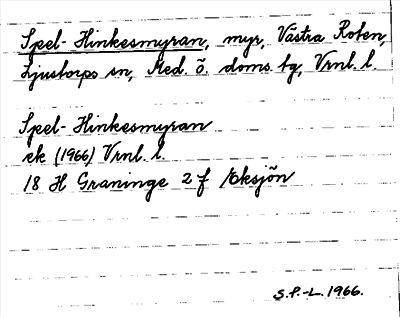 Spel-Hinkesmyran, myr, Västra Roten,
Ljustorps sn, Med. ö. doms. tg, Vrnl. l.
Spel-Hinkesmyran
ek (1966) Vrnl. l.
18 H Graninge 2 f /Oksjön
S.P.-L. 1966.